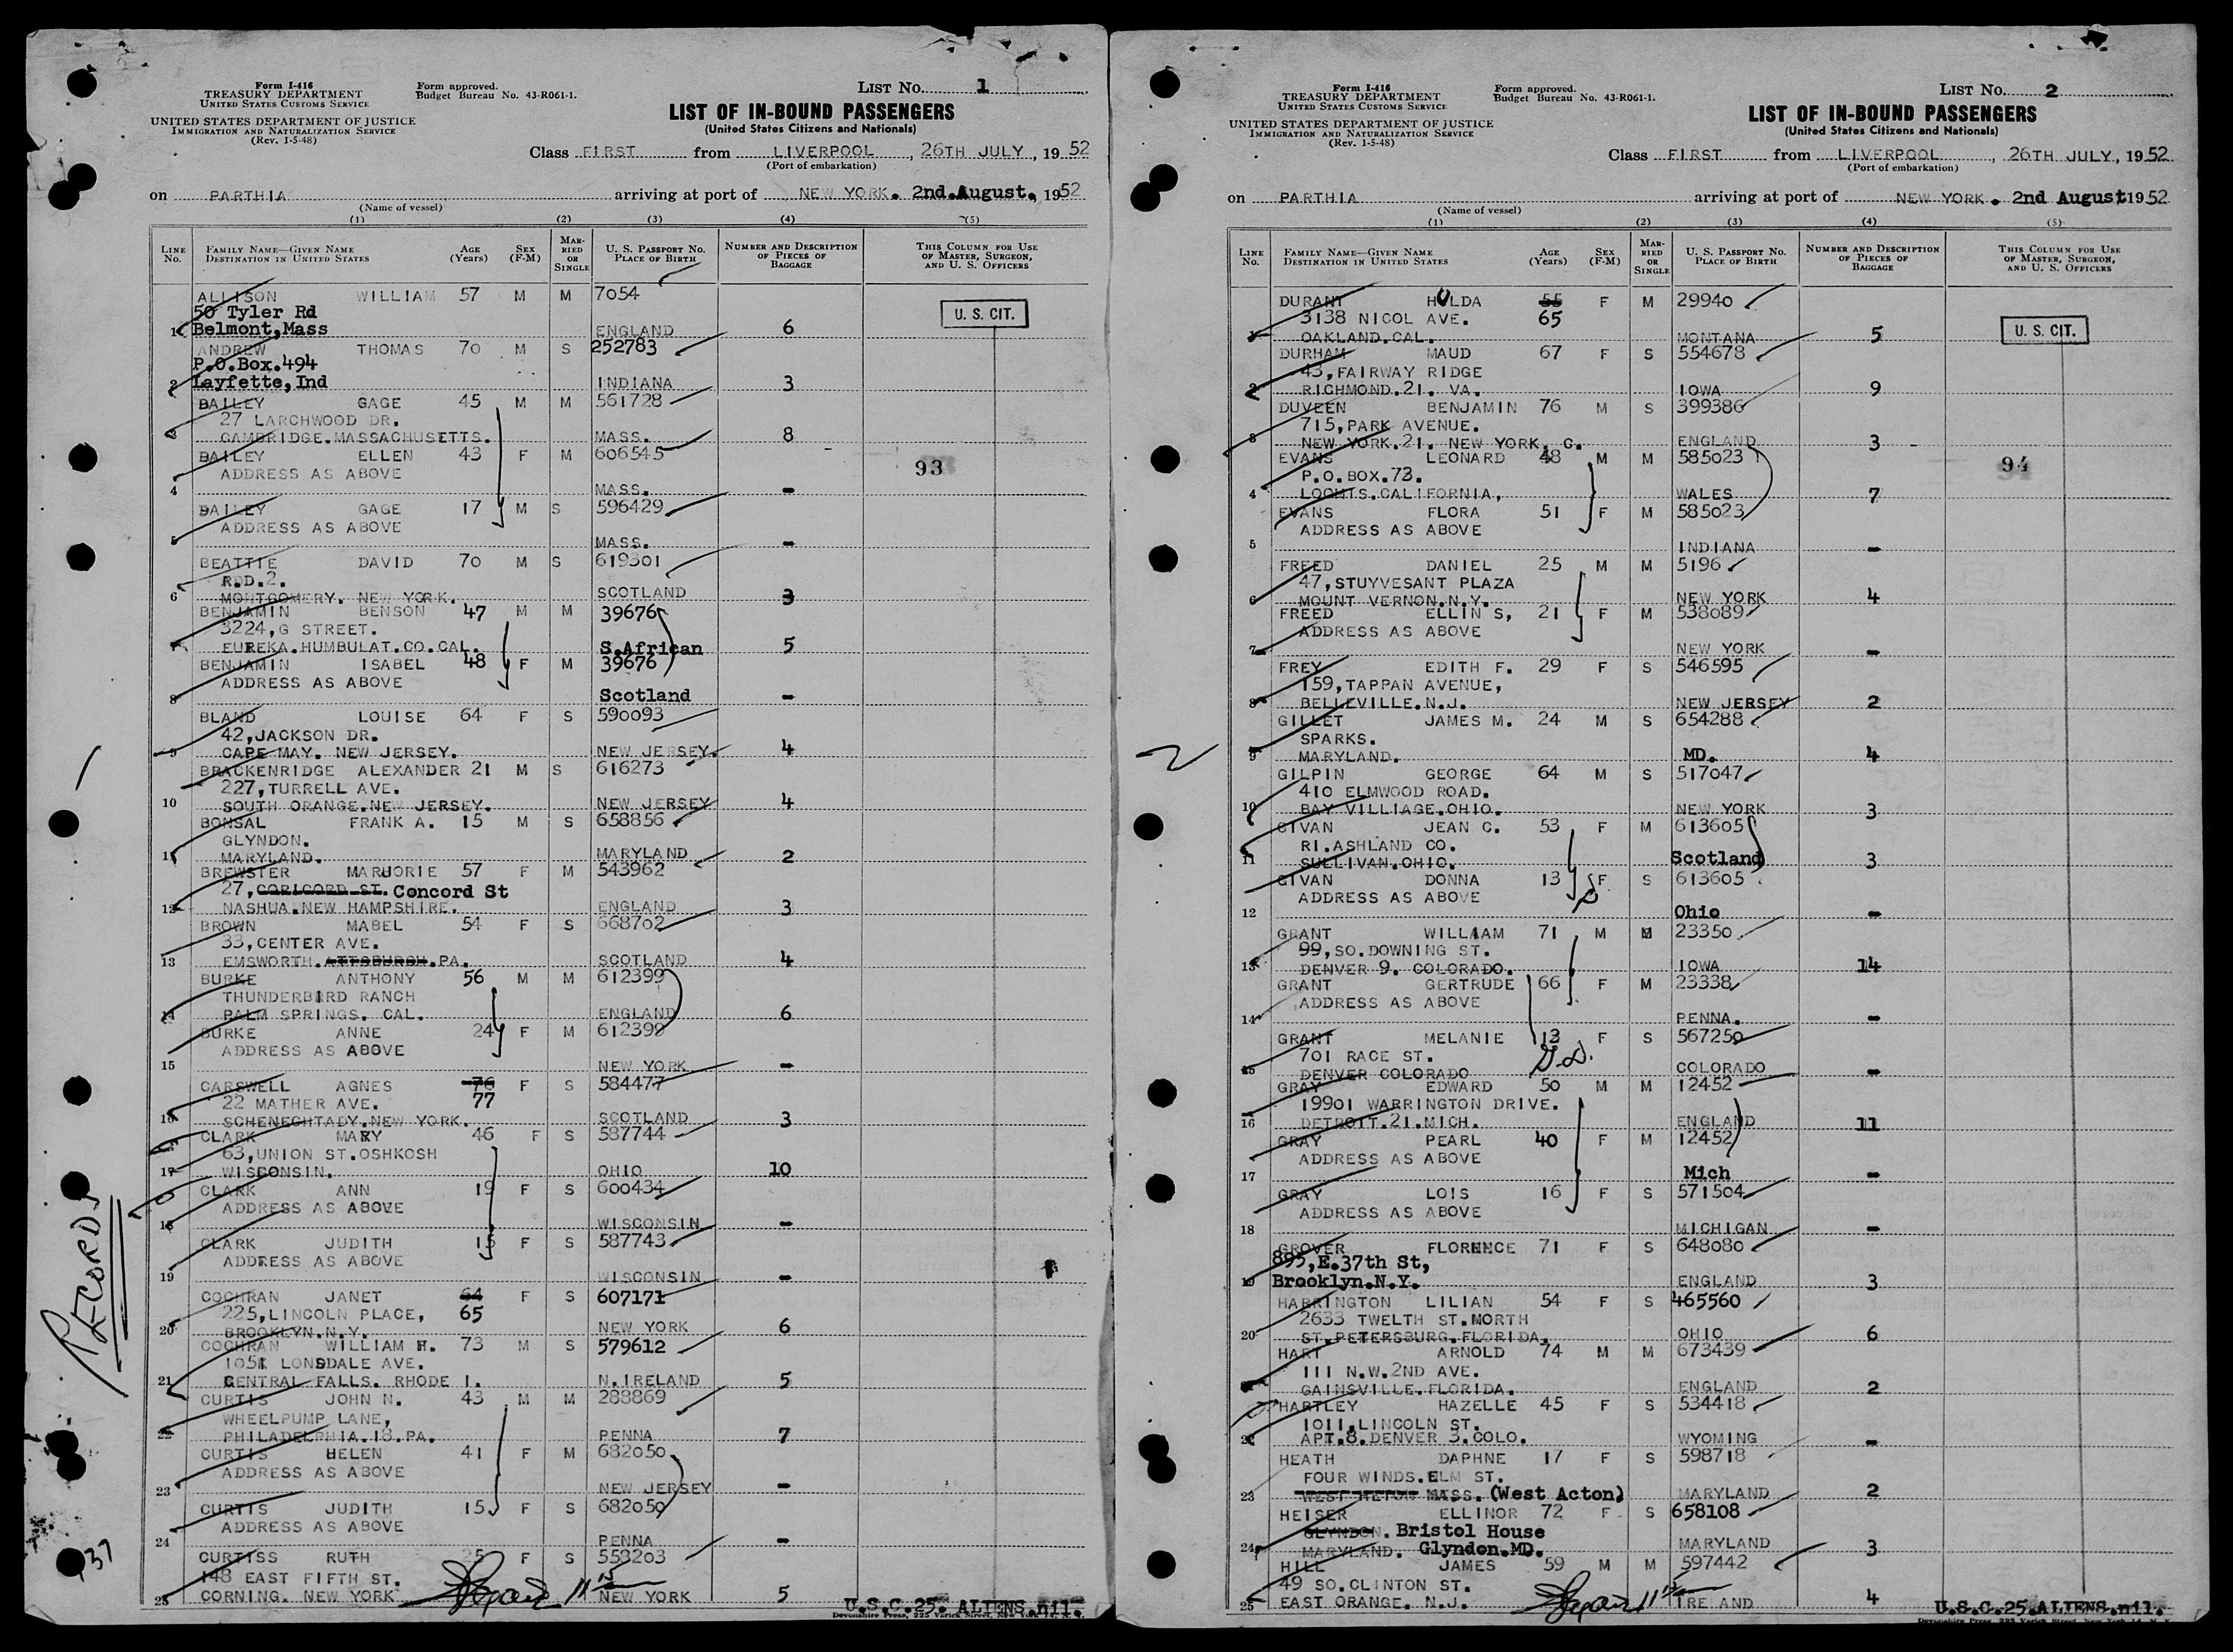 Form I-416
TREASURY DEPARTMENT
UNITED STATES CUSTOMS SERVICE
UNITED STATES DEPARTMENT OF JUSTICE
IMMIGRATION AND NATURALIZATION SERVICE
(Rev. 1-5-48)
Form approved.
Budget Bureau No. 43-R061-1.
LIST No. 1
LIST OF IN-BOUND PASSENGERS
(United States Citizens and Nationals)
Class FIRST from LIVERPOOL, 26TH JULY, 1952
(Port of embarkation)
on PARTHIA arriving at port of NEW YORK. 2nd.August., 1952
(Name of vessel)
(1) (2) (3) (4) (5)
LINE No. FAMILY NAME—GIVEN NAME DESTINATION IN UNITED STATES AGE (Years) SEX (F-M) MARRIED OR SINGLE U. S. PASSPORT No. PLACE OF BIRTH NUMBER AND DESCRIPTION OF PIECES OF BAGGAGE THIS COLUMN FOR USE OF MASTER, SURGEON, AND U. S. OFFICERS
ALLISON WILLIAM 57 M M 7054
50 Tyler Rd
U. S. CIT.
1 Belmont,Mass ENGLAND 6
ANDREW THOMAS 70 M S 252783
P.O.Box.494
2 Layfette,Ind INDIANA 3
BAILEY GAGE 45 M M 561728
27 LARCHWOOD DR.
3 CAMBRIDGE.MASSACHUSETTS. MASS. 8
BAILEY ELLEN 43 F M 606545
ADDRESS AS ABOVE
93
4 MASS. -
BAILEY GAGE 17 M S 596429
ADDRESS AS ABOVE
5 MASS. -
BEATTIE DAVID 70 M S 619301
R.D.2.
6 MONTGOMERY. NEW YORK. SCOTLAND 3
BENJAMIN BENSON 47 M M 39676
3224,G STREET.
7 EUREKA.HUMBULAT.CO.CAL. S.African 5
BENJAMIN ISABEL 48 F M 39676
ADDRESS AS ABOVE
8 Scotland -
BLAND LOUISE 64 F S 590093
42,JACKSON DR.
9 CAPE MAY. NEW JERSEY. NEW JERSEY. 4
BRACKENRIDGE ALEXANDER 21 M S 616273
227,TURRELL AVE.
10 SOUTH ORANGE.NEW JERSEY. NEW JERSEY 4
BONSAL FRANK A. 15 M S 658856
GLYNDON.
11 MARYLAND. MARYLAND 2
BREWSTER MARJORIE 57 F M 543962
27, CORICORD ST. Concord St
12 NASHUA.NEW HAMPSHIRE. ENGLAND 3
BROWN MABEL 54 F S 668702
33,CENTER AVE.
13 EMSWORTH.ATTSBURGH.PA. SCOTLAND 4
BURKE ANTHONY 56 M M 612399
THUNDERBIRD RANCH
14 PALM SPRINGS. CAL. ENGLAND 6
BURKE ANNE 24 F M 612399
ADDRESS AS ABOVE
15 NEW YORK -
CARSWELL AGNES 76 F S 584477
22 MATHER AVE. 77
16 SCHENECHTADY.NEW YORK. SCOTLAND 3
CLARK MARY 46 F S 587744
63,UNION ST.OSHKOSH
17 WISCONSIN. OHIO 10
CLARK ANN 19 F S 600434
ADDRESS AS ABOVE
18 WISCONSIN -
CLARK JUDITH 15 F S 587743
ADDRESS AS ABOVE
19 WISCONSIN -
COCHRAN JANET 64 F S 607171
225,LINCOLN PLACE, 65
20 BROOKLYN.N.Y. NEW YORK 6
COCHRAN WILLIAM H. 73 M S 579612
1051 LONSDALE AVE.
21 CENTRAL FALLS. RHODE I. N.IRELAND 5
CURTIS JOHN N. 43 M M 288869
WHEELPUMP LANE,
22 PHILADELPHIA.18.PA. PENNA 7
CURTIS HELEN 41 F M 682050
ADDRESS AS ABOVE
23 NEW JERSEY -
CURTIS JUDITH 15 F S 682050
ADDRESS AS ABOVE
24 PENNA -
CURTISS RUTH 25 F S 558203
148 EAST FIFTH ST.
25 CORNING. NEW YORK NEW YORK 5
U.S.C.25. ALIENS.nil.
RECORDS
37
Form I-416
TREASURY DEPARTMENT
UNITED STATES CUSTOMS SERVICE
UNITED STATES DEPARTMENT OF JUSTICE
IMMIGRATION AND NATURALIZATION SERVICE
(Rev. 1-5-48)
Form approved.
Budget Bureau No. 43-R061-1.
LIST No. 2
LIST OF IN-BOUND PASSENGERS
(United States Citizens and Nationals)
Class FIRST from LIVERPOOL, 26TH JULY, 1952
(Port of embarkation)
on PARTHIA arriving at port of NEW YORK. 2nd August 1952
(Name of vessel)
(1) (2) (3) (4) (5)
LINE No. FAMILY NAME—GIVEN NAME DESTINATION IN UNITED STATES AGE (Years) SEX (F-M) MARRIED OR SINGLE U. S. PASSPORT No. PLACE OF BIRTH NUMBER AND DESCRIPTION OF PIECES OF BAGGAGE THIS COLUMN FOR USE OF MASTER, SURGEON, AND U. S. OFFICERS
DURANT HULDA 55 F M 29940
3138 NICOL AVE. 65
U. S. CIT.
1 OAKLAND.CAL. MONTANA 5
DURHAM MAUD 67 F S 554678
43,FAIRWAY RIDGE
2 RICHMOND.21. VA. IOWA 9
DUVEEN BENJAMIN 76 M S 399386
715,PARK AVENUE.
3 NEW YORK.21. NEW YORK, C. ENGLAND 3
EVANS LEONARD 48 M M 585023
94
P.O.BOX.73.
4 LOOMIS.CALIFORNIA, WALES 7
EVANS FLORA 51 F M 585023
ADDRESS AS ABOVE
5 INDIANA -
FREED DANIEL 25 M M 5196
47,STUYVESANT PLAZA
6 MOUNT VERNON.N.Y. NEW YORK 4
FREED ELLIN S, 21 F M 538089
ADDRESS AS ABOVE
7 NEW YORK -
FREY EDITH F. 29 F S 546595
159,TAPPAN AVENUE,
8 BELLEVILLE.N.J. NEW JERSEY 2
GILLET JAMES M. 24 M S 654288
SPARKS.
9 MARYLAND. MD. 4
GILPIN GEORGE 64 M S 517047
410 ELMWOOD ROAD.
10 BAY VILLIAGE.OHIO. NEW YORK 3
GIVAN JEAN C. 53 F M 613605
RI.ASHLAND CO.
11 SULLIVAN.OHIO. Scotland 3
GIVAN DONNA 13 F S 613605
ADDRESS AS ABOVE
12 Ohio -
GRANT WILLIAM 71 M M 23350
99,SO.DOWNING ST.
13 DENVER 9. COLORADO. IOWA 14
GRANT GERTRUDE 66 F M 23338
ADDRESS AS ABOVE
14 PENNA. -
GRANT MELANIE 13 F S 567250
701 RACE ST. G.D.
15 DENVER COLORADO COLORADO -
GRAY EDWARD 50 M M 12452
19901 WARRINGTON DRIVE.
16 DETROIT.21.MICH. ENGLAND 11
GRAY PEARL 40 F M 12452
ADDRESS AS ABOVE
17 Mich -
GRAY LOIS 16 F S 571504
ADDRESS AS ABOVE
18 MICHIGAN -
GROVER FLORENCE 71 F S 648080
895,E.37th St,
19 Brooklyn.N.Y. ENGLAND 3
HARRINGTON LILIAN 54 F S 465560
2633 TWELTH ST.NORTH
20 ST.PETERSBURG.FLORIDA. OHIO 6
HART ARNOLD 74 M M 673439
111 N.W.2ND AVE.
21 GAINSVILLE.FLORIDA. ENGLAND 2
HARTLEY HAZELLE 45 F S 534418
1011,LINCOLN ST.
22 APT.8.DENVER 3.COLO. WYOMING -
HEATH DAPHNE 17 F S 598718
FOUR WINDS.ELM ST.
23 WEST ACTON MASS. (West Acton) MARYLAND 2
HEISER ELLINOR 72 F S 658108
GLYNDON. Bristol House
24 MARYLAND. Glyndon.MD. MARYLAND 3
HILL JAMES 59 M M 597442
49 SO.CLINTON ST.
25 EAST ORANGE. N.J. IRELAND 4
U.S.C.25.ALIENS.nil.